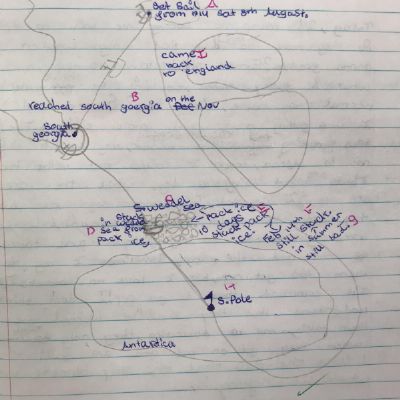 set sail A
from 1914 sat 8th August.
came I
back
to england
B
reached south georgia on the
Dec Nov
south
georgia
C
weddel
sea
stuck
in weddel
D sea from
pack
ice
pack ice E
10 days
stuck pack
ice
F
Feb
still stuck
in summer
still bad. g
H
S.Pole
Antardica